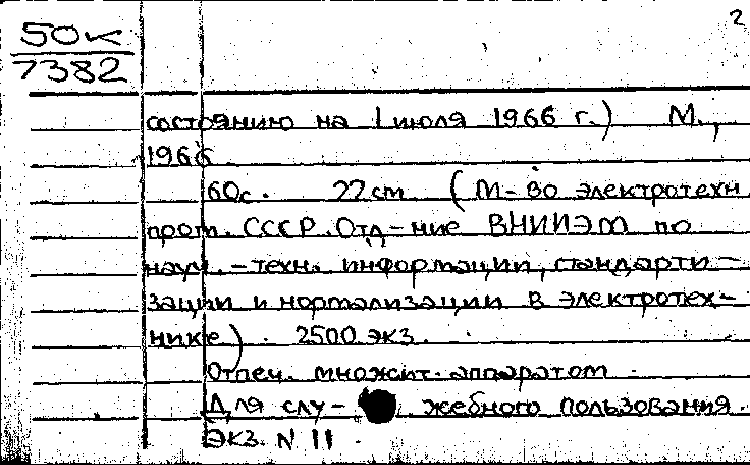 2
50к
7382
состоянию на 1 июля 1966 г.) М.,
1966
60с. 22см (М-во электротехн
пром. СССР. Отд-ние ВНИИЭМ по
научн.-техн. информации, стандарти-
зации и нормализации в электротех-
нике). 2500 экз.
Отпеч. множит. аппаратом.
Для слу- жебного пользования.
Экз. N 11.